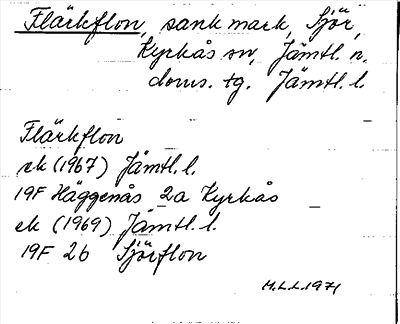 Flärkflon, sank mark, Sjör,
Kyrkås sn, Jämtl. n.
doms. tg. Jämtl. l.
Flärkflon
ek (1967) Jämtl. l.
19F Häggenås 2a Kyrkås
ek (1969) Jämtl. l.
19F 2b Sjörflon
M.L.L. 1971